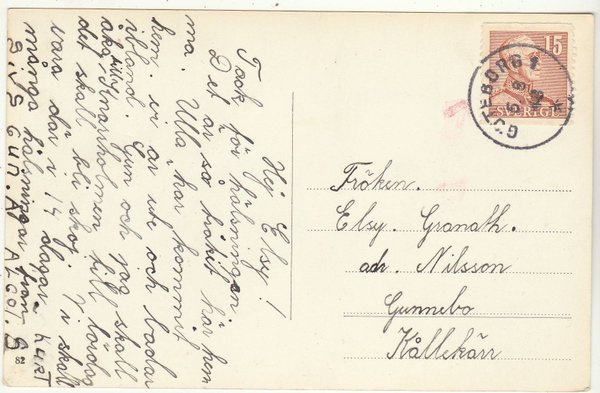 Hej Elsy!
Tack för hälsningen
Det är så tråkit här hem
ma. Ulla har kommit
hem. vi är ute och badar
ibland. Gun och jag skall
åka till Knarrholmen till lördag
det skall bli skoj. Vi skall
vara där i 14 dagar
många hälsningar från
SIVS GUN. Å KURT
Å GÖT. B
82
15
SVERIGE
GÖTEBORG 1
Fröken.
Elsy. Granath.
adr. Nilsson
Gunnebo
Kållekärr